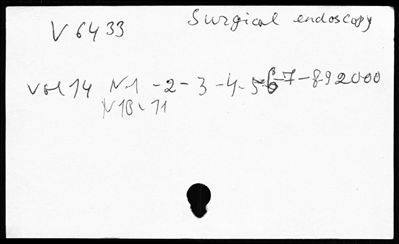 V 6433 Surgical endoscopy
Vol 14 N-1 -2-3-4-5-6-7-8-9 2000
N10-11